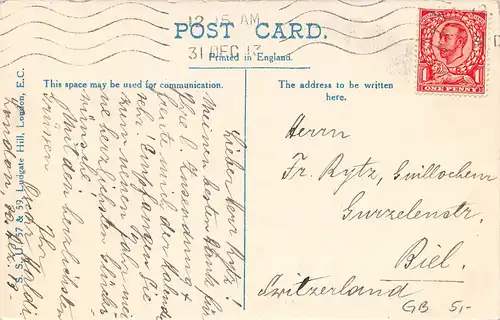 12.15 AM
31 DEC 13
POST CARD.
Printed in England.
This space may be used for communication.
The address to be written
here.
ONE PENNY
S. S. U. 57 & 59, Ludgate Hill, London, E.C.
Lieber Herr Rytz!
Meinen besten Dank für
Ihre l. Zusendung
freute mich der
sehr. Empfangen Sie
zum neuen Jahr mei-
ne herzlichsten
wünsche.
Mit den herzlichsten
Grüssen
Ihr
London
Herrn
Fr. Rytz, Guillocheur
Gurzelenstr.
Biel.
Switzerland
GB 5,-